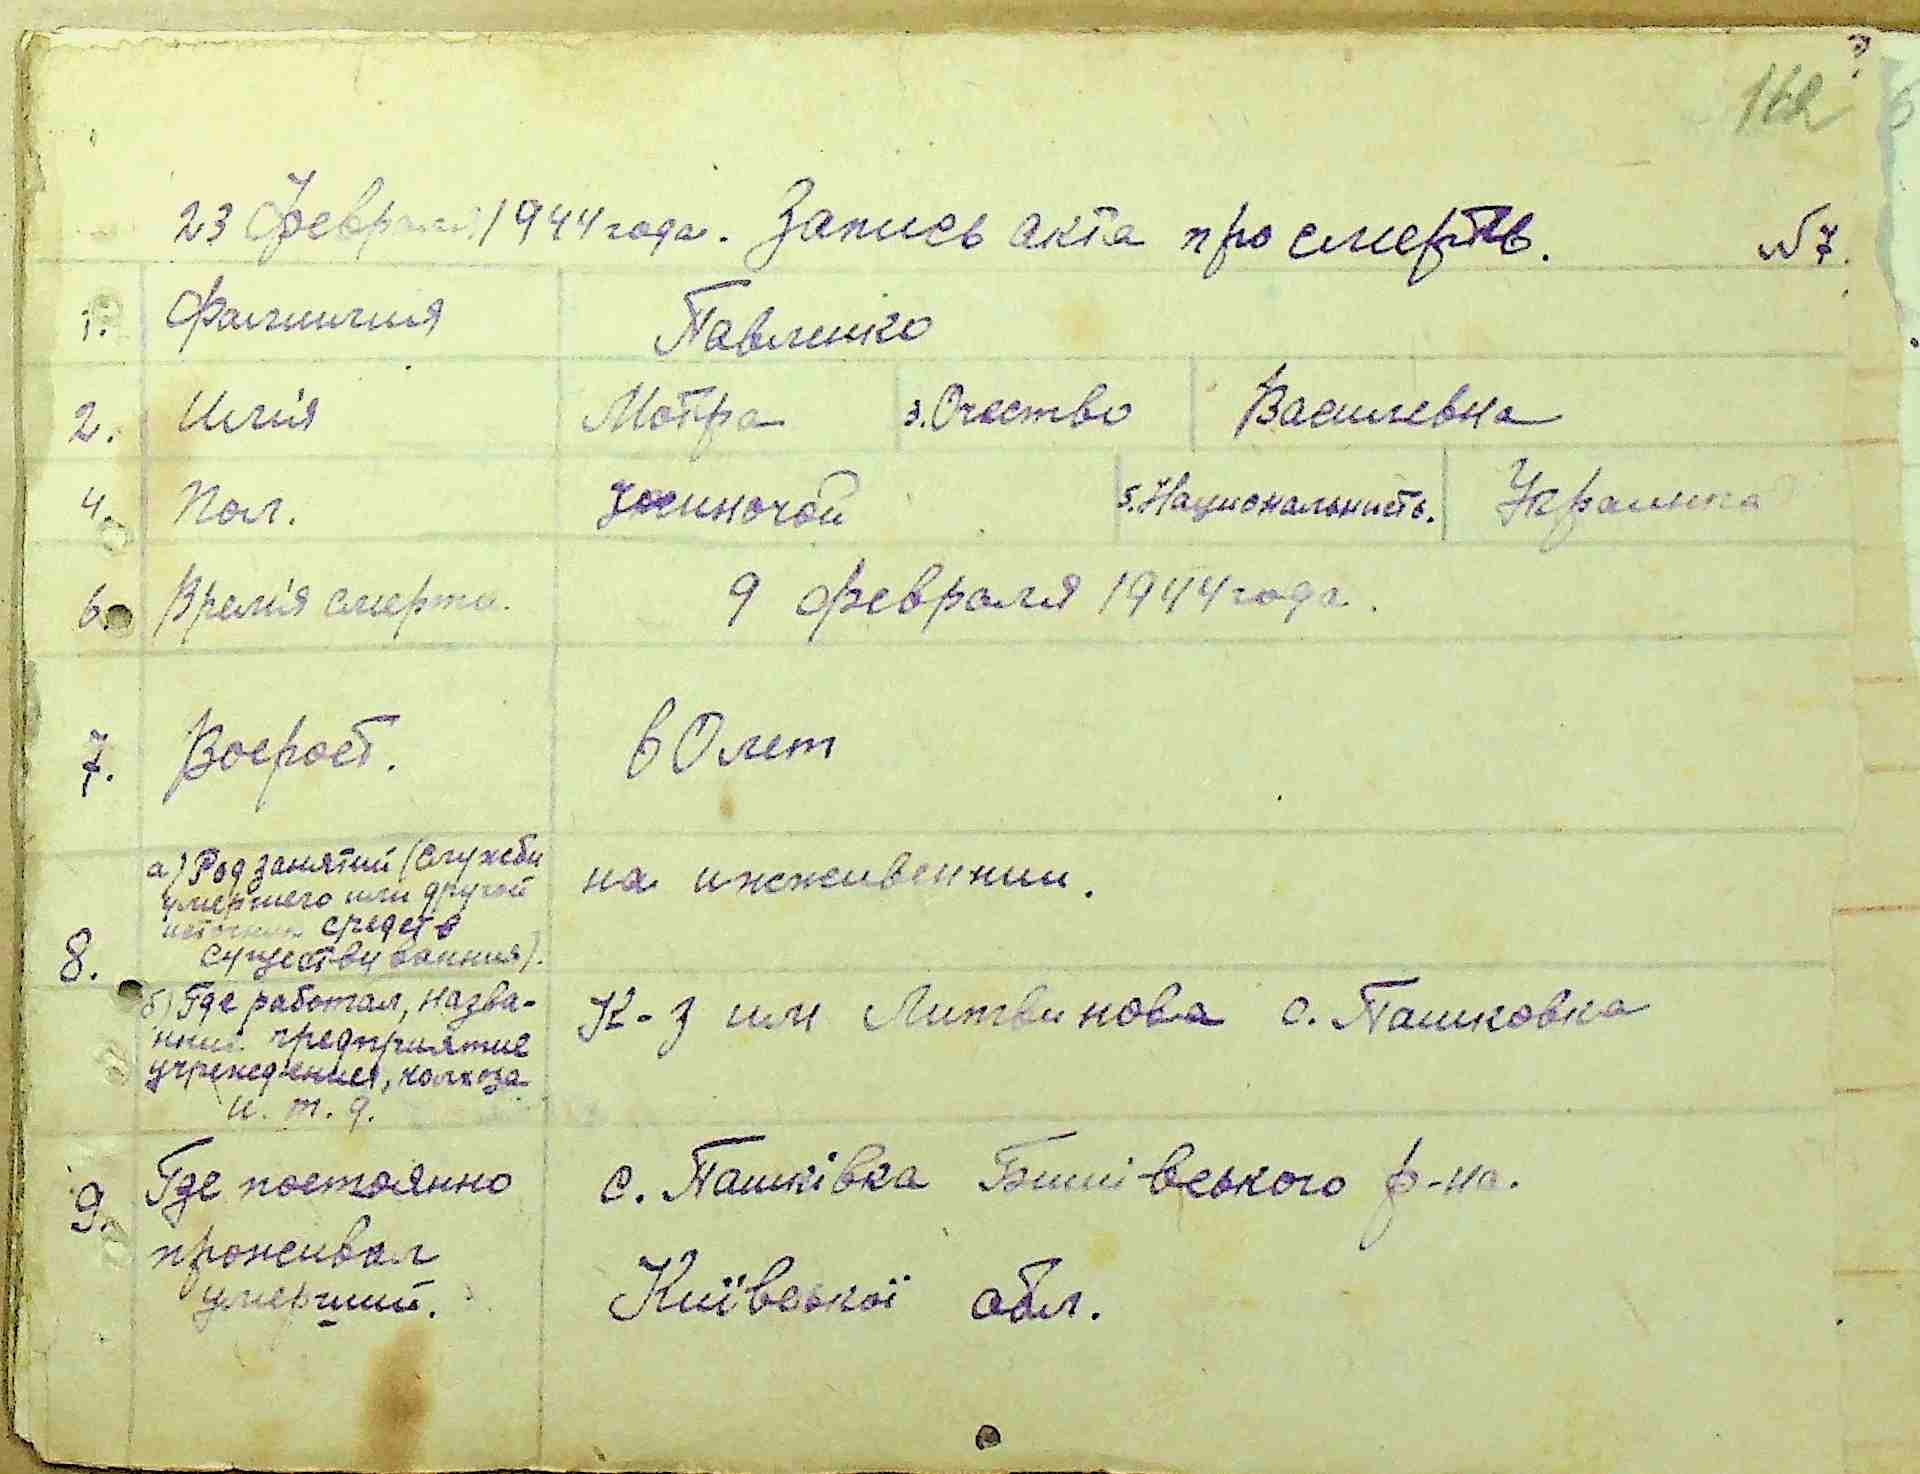 162
23 февраля 1944 года. Запись акта про смерть. №7.
1. Фамилия Павленко
2. Имія Мотра 3. Очество Василевна
4. Пол. жиночой 5. Национальність. Украинка
6. Времія смерти. 9 февраля 1944 года.
7. Восрост. 60 лет
8. а) Род занятий (службы
умершего или другой
источник средств
существування).
на ижживеннии.
б) Где работал, назва-
нния предприятие
учреждения, колхоза
и. т. д.
К-з им Литвинова с. Пашковка
9. Где постоянно
проживал
умерший.
с. Пашківка Бишівського р-на.
Київської обл.